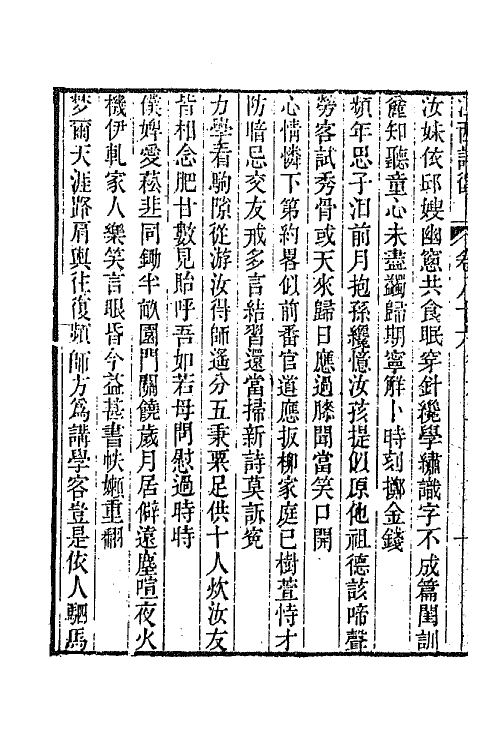 江西詩徵 卷八十六 十
汝妹依邱嫂幽窻共食眠穿針纔學繡識字不成篇閨訓
麄知聽童心未盡蠲歸期寧解卜時刻擲金錢
頻年思子泪前月抱孫纔憶汝孩提似原他祖德該啼聲
勞客試秀骨或天來歸日應過膝聞當笑口開
心情憐下第約畧似前番官道應扳柳家庭已樹萱恃才
防暗忌交友戒多言結習還當掃新詩莫訴寃
力學看駒隙從游汝得師遙分五秉粟足供十人炊汝友
皆相念肥甘數見貽呼吾如若母問慰過時時
僕婢愛菘韭同鋤半畝園門關饒歲月居僻遠塵喧夜火
機伊軋家人樂笑言眼昏今益甚書帙嬾重翻
梦爾天涯路肩輿往復頻師方爲講學客豈是依人駟馬